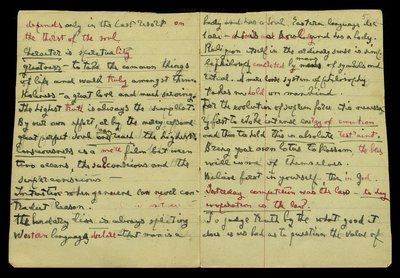 depends only in the last resort on
the thirst of the soul
Greater is spirituality
Greatness – to take the common things
of life and would truly amongst them.
Holiness – a great love and much serving.
The highest truth is always the simplest.
By our own effort, or by the mercy
that perfect soul the highest
Consciousness is a mere film between
two oceans, the subconscious and the
superconscious –
Intuition when genuine can never con
tradict Reason.
the border line is always splitting
Western languages declare that man is a
body and has a Soul. Eastern languages dec
lare – he is a Soul and has a body.
Religion itself in the ordinary sense is simp
ly philosophy by means of symbols and
ritual. A mere loose system of philosophy
takes no hold on mankind.
For the evolution of system force it is necessa
ry first to wake intense energy of emotion
and then to hold this in absolute restraint.
Bring your own lotus to blossom the bees
will come of themselves.
Believe first in yourself, then in God.
Yesterday competition was the law – to day
cooperation is the law.
To judge truth by the what good it
does is as bad as to question the value of